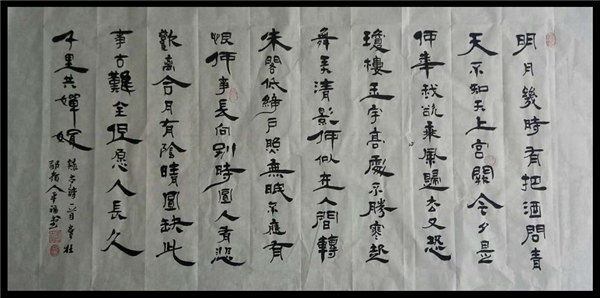 明月幾時有把酒問青
天不知天上宮闕今夕是
何年我欲乘風歸去又恐
瓊樓玉宇高處不勝寒起
舞弄清影何似在人間轉
朱閣低綺戶照無眠不應有
恨何事長向別時圓人有悲
歡離合月有陰晴圓缺此
事古難全但願人長久
千里共嬋娟
錄古詩一首